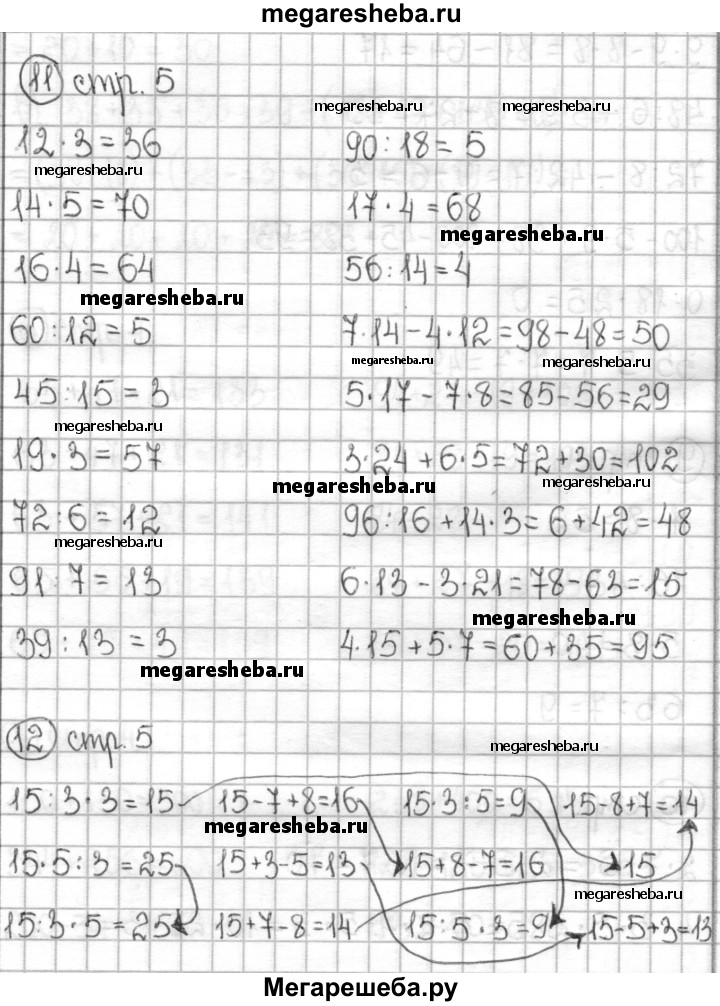 megaresheba.ru
11 стр. 5
megaresheba.ru megaresheba.ru
12·3=36 90:18=5
megaresheba.ru
14·5=70 17·4=68
megaresheba.ru
16·4=64 56:14=4
megaresheba.ru
60:12=5 7·14-4·12=98-48=50
megaresheba.ru megaresheba.ru
45:15=3 5·17-7·8=85-56=29
megaresheba.ru
19·3=57 3·24+6·5=72+30=102
megaresheba.ru megaresheba.ru
72:6=12 96:16+14·3=6+42=48
megaresheba.ru
91:7=13 6·13-3·21=78-63=15
megaresheba.ru
39:13=3 4·15+5·7=60+35=95
megaresheba.ru
12 стр. 5
megaresheba.ru
15:3·3=15 15-7+8=16 15·3:5=9 15-8+7=14
megaresheba.ru
15·5:3=25 15+3-5=13 15+8-7=16 15
megaresheba.ru
15:3·5=25 15+7-8=14 15:5·3=9 15-5+3=13
Мегарешеба.ру